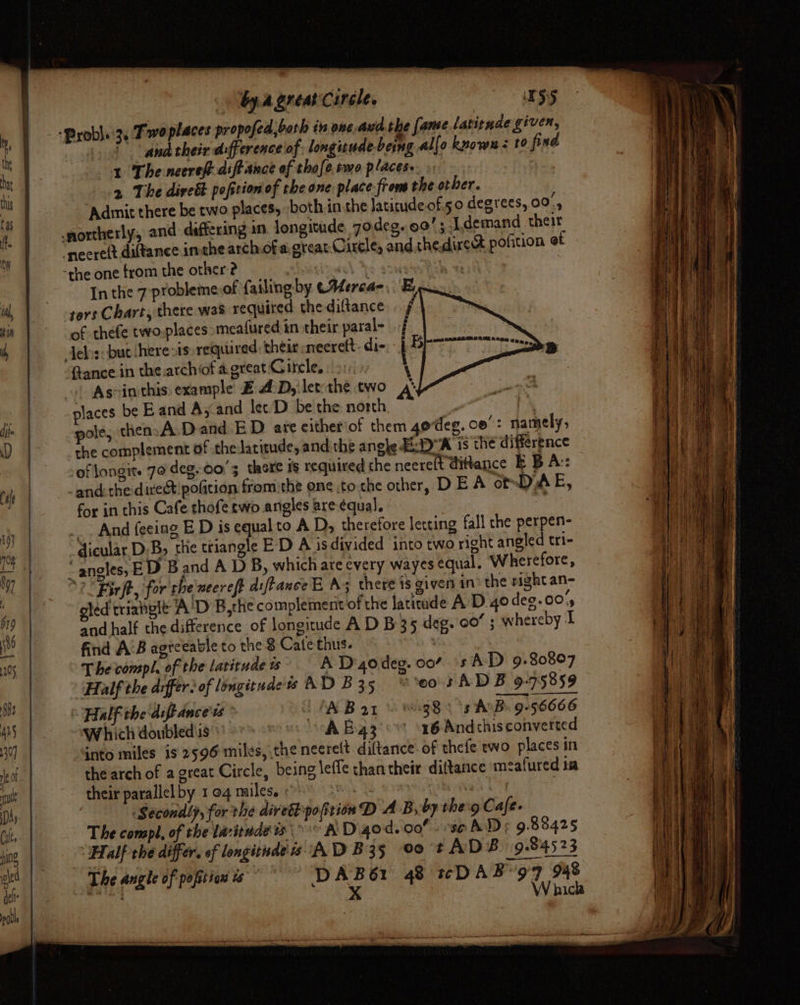 by a great Circle. 155
Probl. 3. Two places proposed, both in one and the same latitude given,
and their difference of longitude being also known: to find
1 The neerest distance of those two places.
2 The direct position of the one place from the other.
Admit there be two places, both in the latitude of 50 degrees, 00',
northerly, and differing in longitude 70deg. 00'; I demand their
neerest distance in the arch of a great Circle, and the direct position of
the one from the other?
In the 7 probleme of sailing by Merca- E
tors Chart, there was required the distance
of these two places measured in their paral-
lels: but here is required their neerest di- B
stance in the arch of a great Circle.
As in this example E A D, let the two A
places be E and A, and let D be the north
pole, then A D and E D are either of them 40deg. 00': namely,
the complement of the latitude, and the angle E D A is the difference
of longit. 70 deg. 00'; there is required the neerest distance E B A:
and the direct position from the one to the other, D E A or D A E,
for in this Case those two angles are equal.
And seeing E D is equal to A D, therefore letting fall the perpen-
dicular D B, the triangle E D A is divided into two right angled tri-
angles, E D B and A D B, which are every wayes equal. Wherefore,
First, for the neerest distance E A; there is given in the right an-
gled triangle A D B, the complement of the latitude A D 40 deg. 00',
and half the difference of longitude A D B 35 deg. 00'; whereby I
find A B agreeable to the 8 Case thus.
The compl. of the latitude is A D 40 deg. 00' s A D 9.80807
Half the differ. of longitude is A D B 35 00 s A D B 9.75859
Half the distance is A B 21 38 s A B 9.56666
Which doubled is A E 43 16 And this converted
into miles is 2596 miles, the neerest distance of these two places in
the arch of a great Circle, being lesse than their distance measured in
their parallel by 104 miles.
Secondly, for the direct position D A B, by the 9 Case.
The compl. of the latitude is A D 40 d. 00' sc A D; 9.88425
Half the differ. of longitude is A D B 35 00 t A D B 9.84523
The angle of position is D A B 61 48 tc D A B 9.72948
X Which